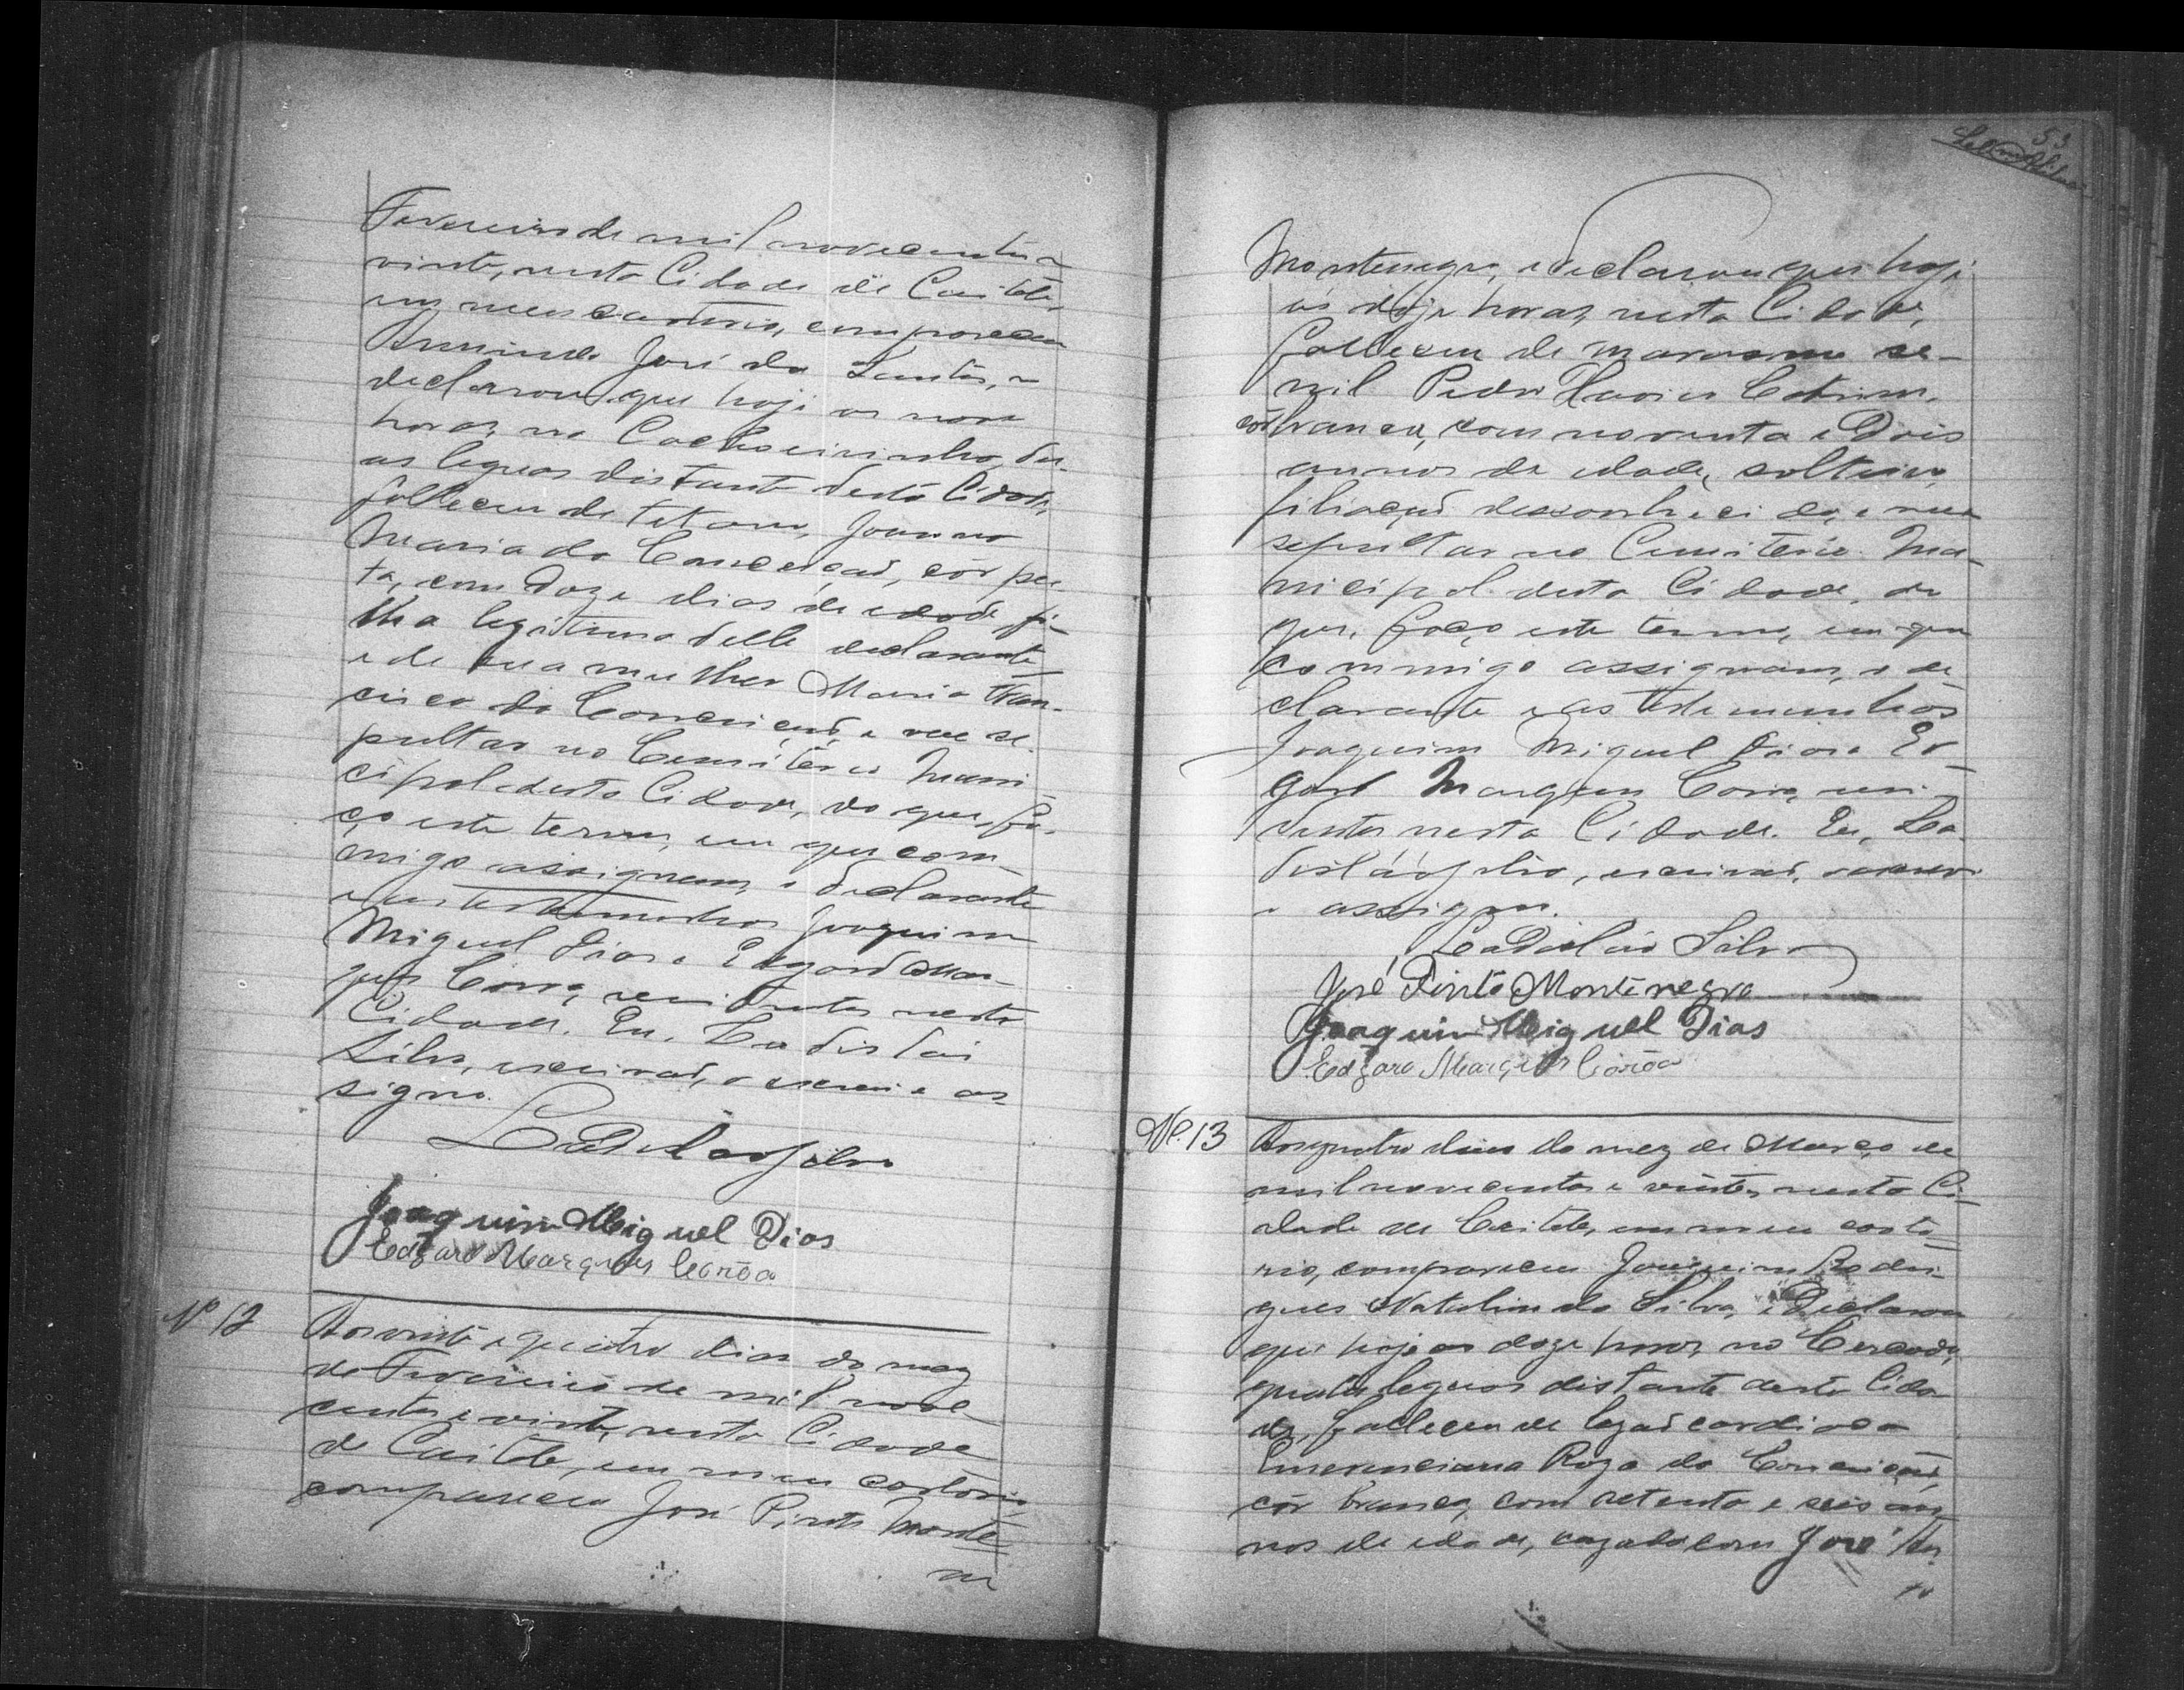 Fevereiro de mil novecentos e
vinte, nesta Cidade de Caiteté,
em meu cartorio, compareceu
Armindo José dos Santos, e
declarou que hoje as nove
horas, no Cachoeirinha, du-
as leguas distante desta Cidade,
falleceu de tetano, Joanna
Maria da Conceição, côr pre-
ta, com doze dias de edade, fi-
lha legitima delle declarante
e de sua mulher Maria Fran-
cisca da Conceição, e vae se-
pultar no Cemiterio Muni-
cipal desta Cidade, do que, fa-
ço este termo, em que com-
migo assignam, o declarante
e as testemunhas Joaquim
Miguel Dias e Edgard Mar-
ques Corôa, residentes nesta
Cidade. Eu, Ladisláo
Silva, escrivão, o escrevi e as-
signo.
Ladisláo Silva
Joaquim Miguel Dias
Edgard Marques Corôa
Nº 12
Aos vinte e quatro dias do mez
de Fevereiro de mil nove-
centos e vinte, nesta Cidade
de Caiteté, em meu cartorio,
compareceu José Pinto Monte
ne
53
Montenegro, e declarou que hoje
as doze horas, nesta Cidade,
falleceu de marasmo se-
nil Pedro Xavier Cotrim,
côr branca, com noventa e dois
annos de edade, solteiro,
filiação desconhecida, e vae
sepultar no Cemiterio Mu-
nicipal desta Cidade, do
que, faço este termo, em que
commigo assignam, o de-
clarante e as testemunhas
Joaquim Miguel Dias e Ed-
gard Marques Corôa, resi-
dentes nesta Cidade. Eu, La-
disláo Silva, escrivão, o escrevi
e assigno.
Ladisláo Silva
José Pinto Montenegro
Joaquim Miguel Dias
Edgard Marques Corôa
Nº. 13
Aos quatro dias do mez de Março de
mil novecentos e vinte, nesta Ci-
dade de Caiteté, em meu carto-
rio, compareceu Joaquim Rodri-
gues Natalino da Silva, e declarou
que hoje as doze horas, no Cercado,
quatro leguas distante desta Cida-
de, falleceu de lezão cardiaca
Emerenciana Roza da Conceição,
côr branca, com setenta e seis an-
nos de edade, cazada com José An-
to